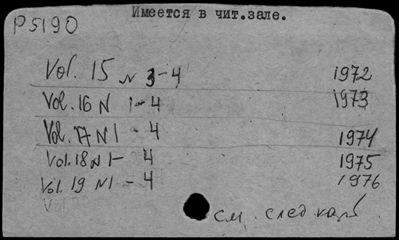 Имеется в чит.зале.
P5190
Vol. 15 N 3-4 1972
Vol. 16 N 1-4 1973
Vol. 17 N 1 - 4 1974
Vol. 18 N 1- 4 1975
Vol. 19 N 1 - 4 1976
Vol
см. след. карт.